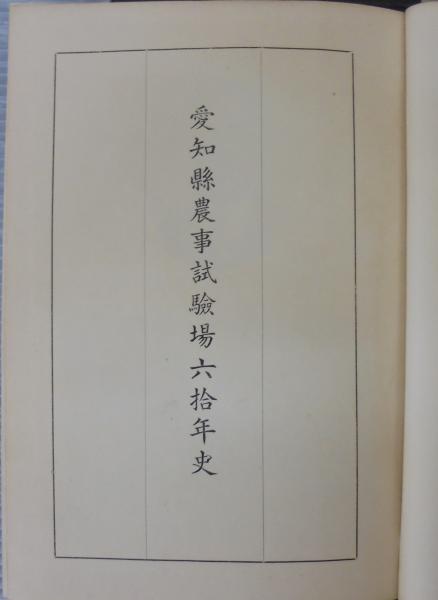 愛知縣農事試驗場六拾年史